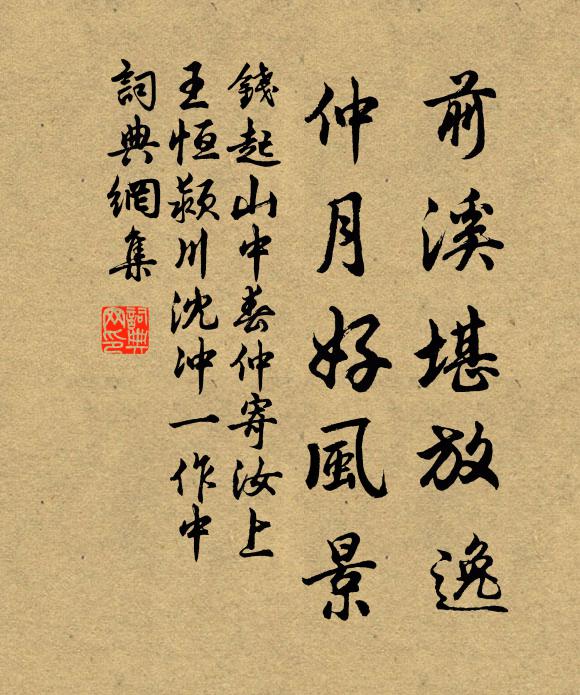 前溪堪放逸
仲月好風景
錢起山中春仲寄汝上
王恒潁川沈冲一作中
詞典網集
詞典網印